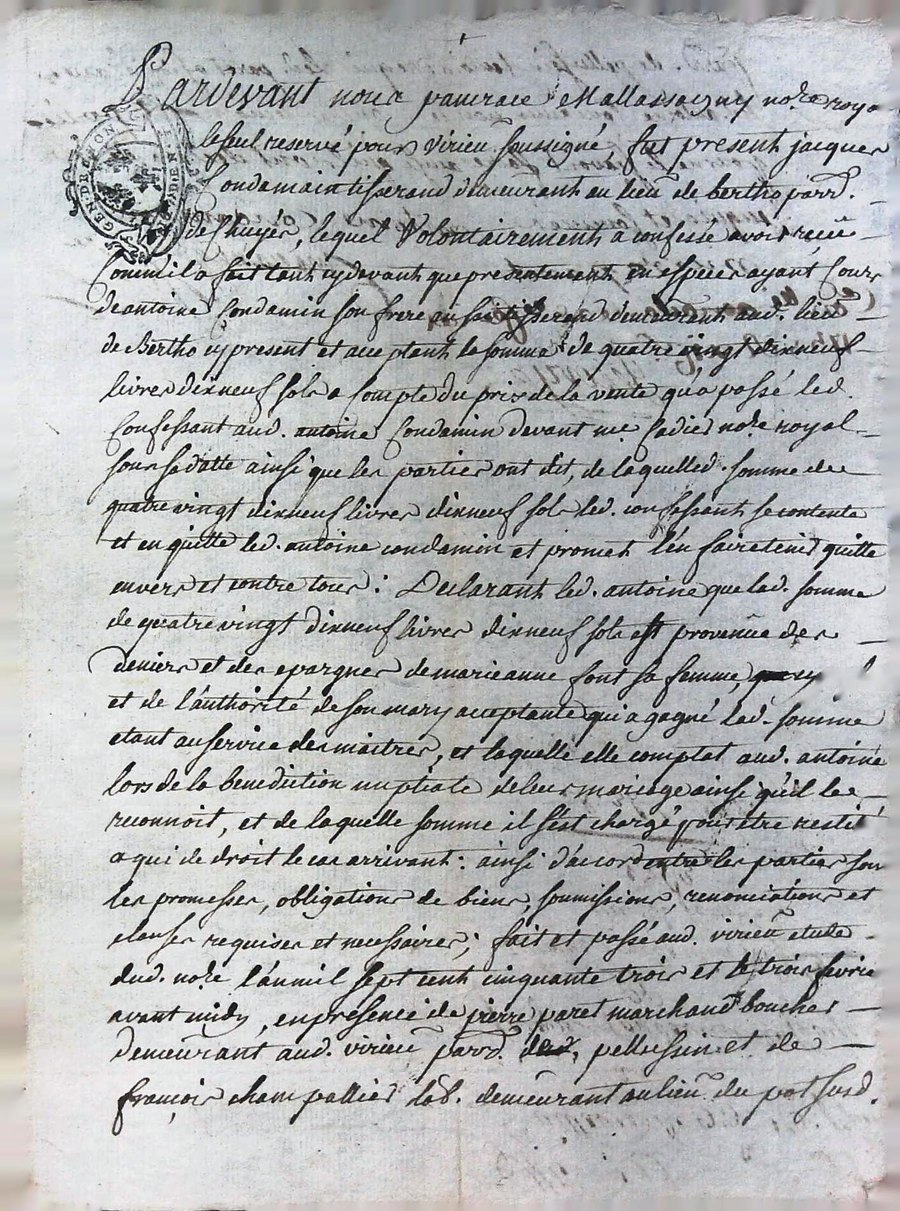 Pardevant nous pancrace Mallassagny no.re roya
le seul reservé pour virieu soussigné fut present jacques
Condamain tisserand demeurant au lieu de bertho parr.
de Chuyer, lequel Volontairement a confessé avoir receu
Comme il a fait tant cydevant que presentement en especes ayant Cours
de antoine Condamin son frere aussi tisserand demeurant aud. lieu
de Bertho cy present et acceptant la somme de quatre vingt dixneuf
livres dixneuf sols a Compte du prix de la vente qu'a passé led.
Confessant aud. antoine Condamin devant me Cadier no.re royal
sous sa datte ainsi que les parties ont dit, de laquelled. somme de
quatre vingt dixneuf livres dixneuf sols led. confessant se contente
et en quitte led. antoine condamin et promet l'en faire tenir quitte
envers et contre tous: Declarant led. antoine que lad. somme
de quatre vingt dixneuf livres dixneuf sols est provenüe des
deniers et des epargnes de marieanne font sa femme,
et de l'authorité de son mary acceptante qui a gagné lad. somme
etant au service des maitres, et laquelle elle comptat aud. antoine
lors de la benediction nuptiale de leur mariage ainsi qu'il le
reconnoit, et de laquelle somme il s'est chargé pour etre restit
a qui de droit le cas arrivant: ainsi d'accord entre les parties sous
les promesses, obligations de biens, soumissions, renonciations et
clauses requises et necessaires; fait et passé aud. virieu etude
dud. no.re l'an mil sept cent cinquante trois et le trois fevrie
avant midy, en presence de pierre paret marchand boucher
demeurant aud. virieu parr. pellussin et de
françois champallier lab. demeurant au lieu du pot susd.
GEN. DE LYON